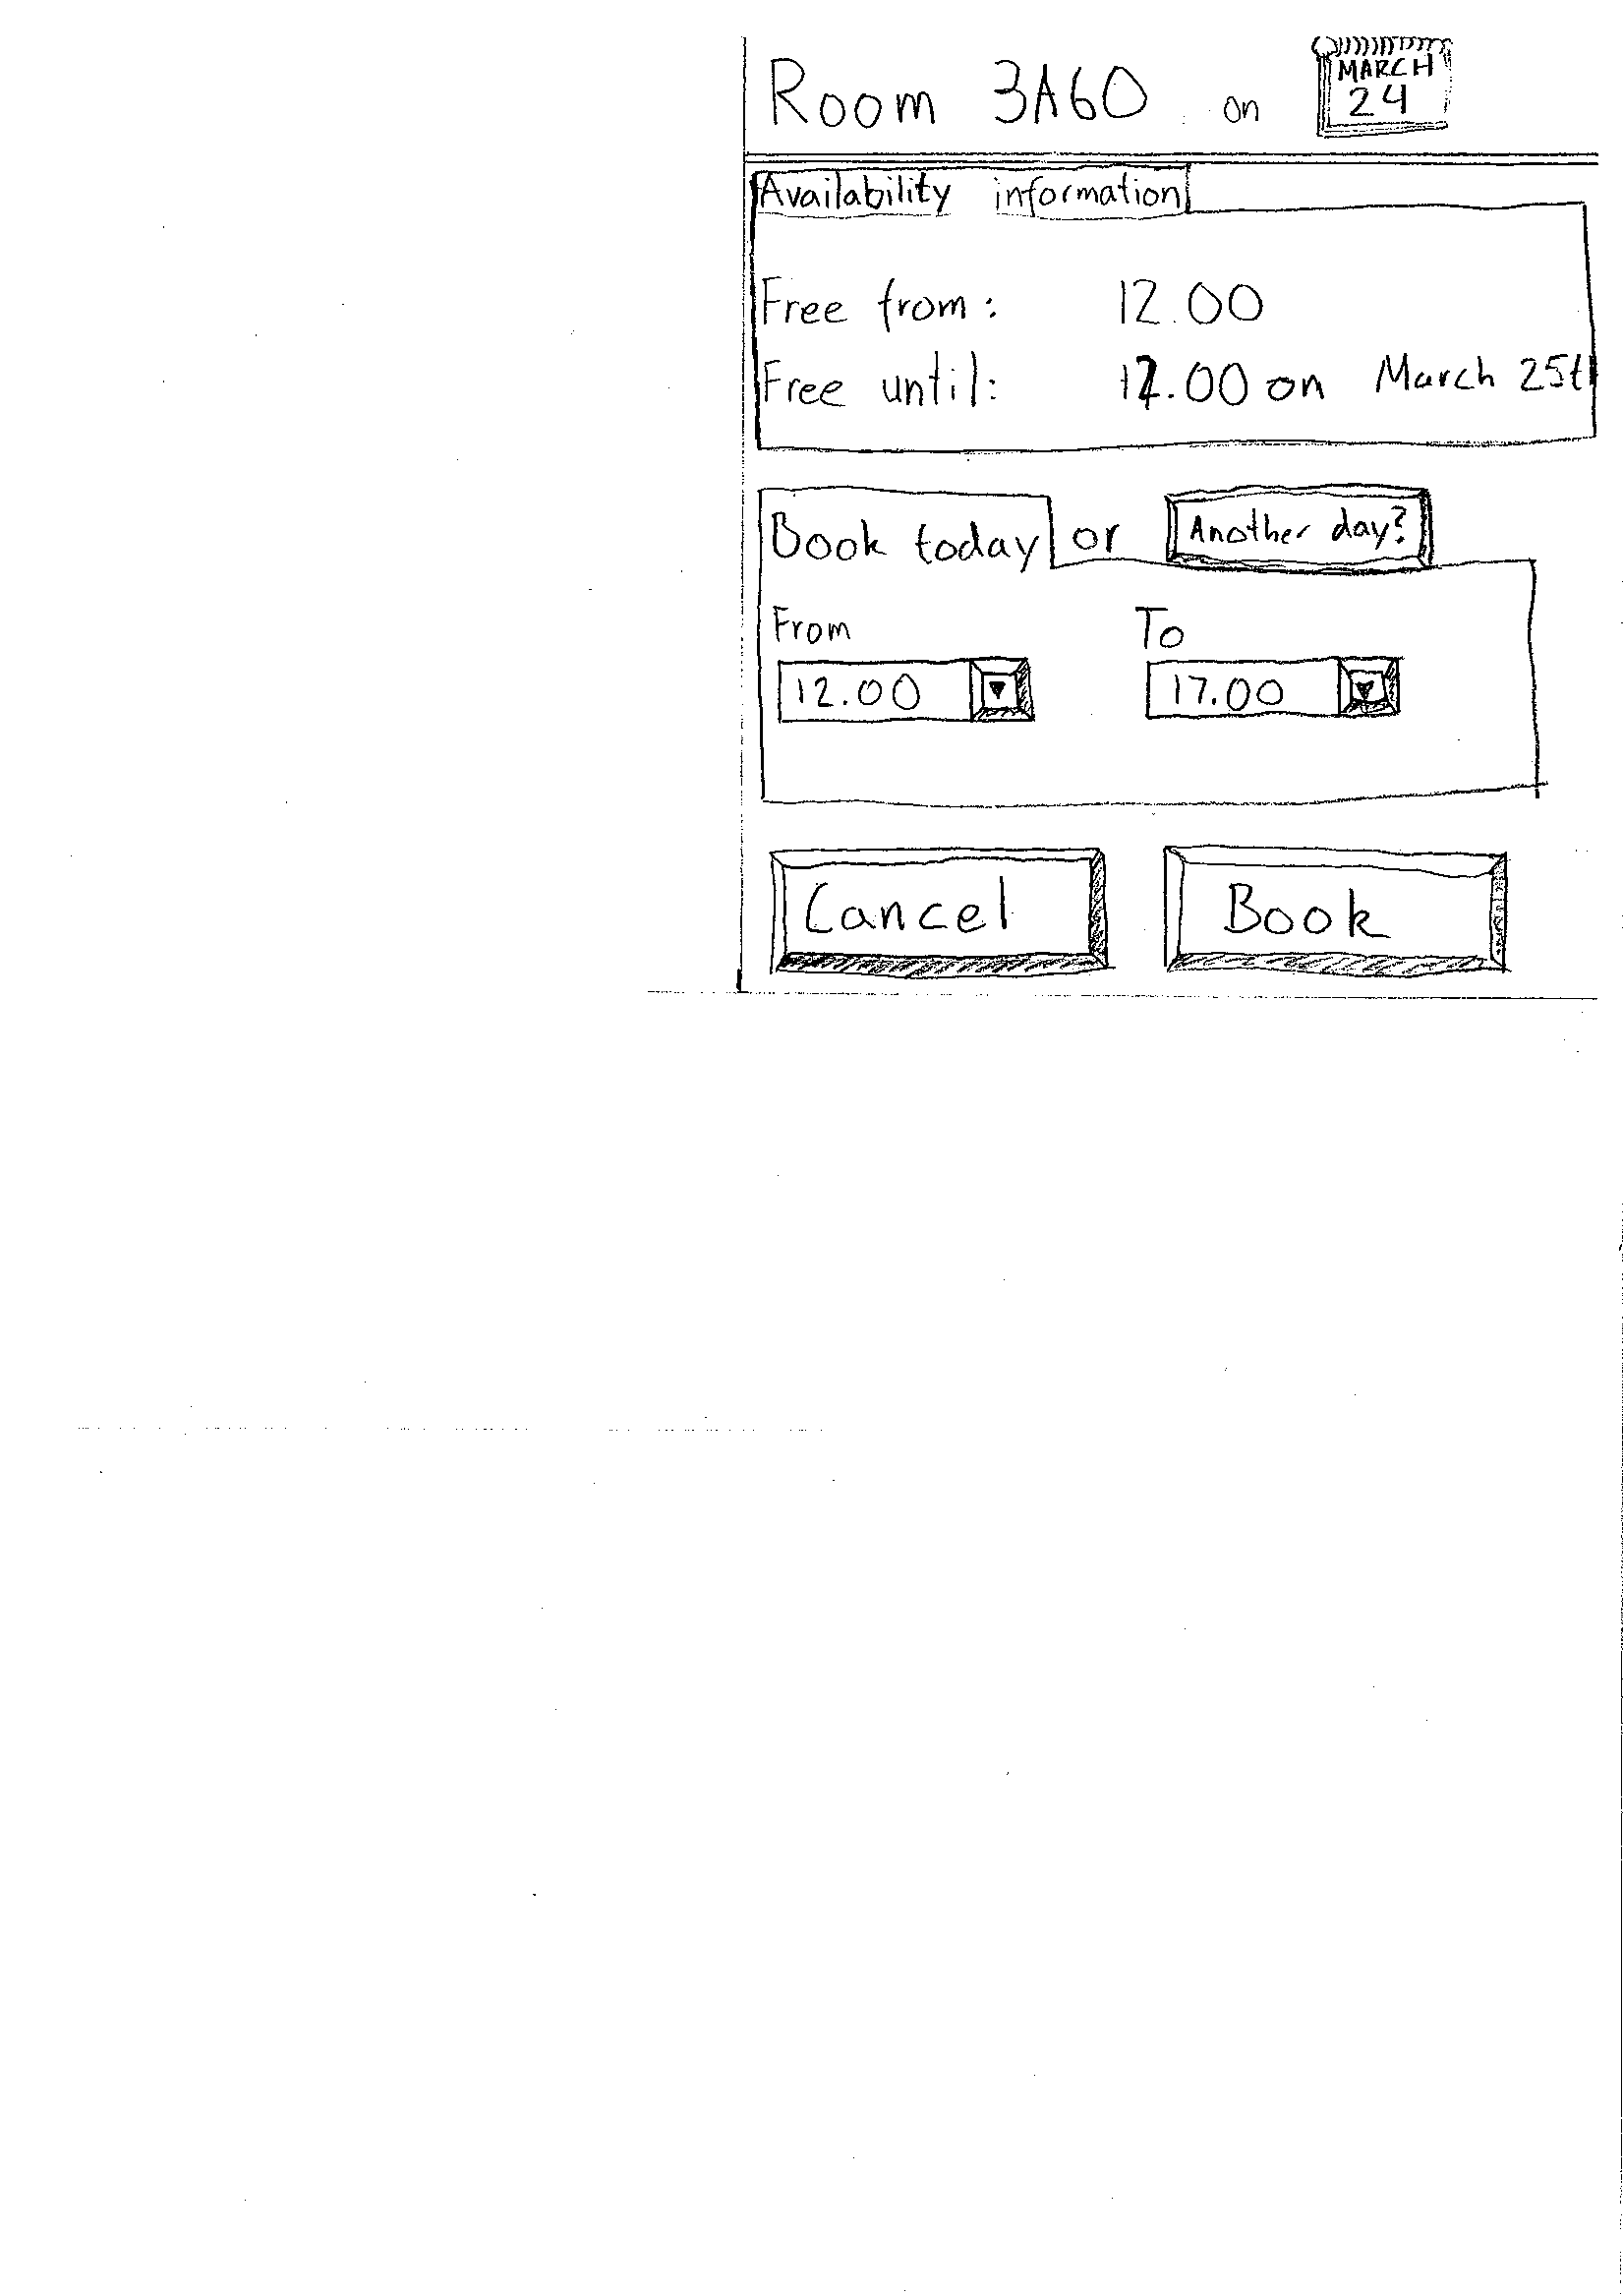 Room 3A60 on MARCH 24
Availability information
Free from: 12.00
Free until: on March 25th
Book today or Another day?
From To
12.00 17.00
Cancel Book